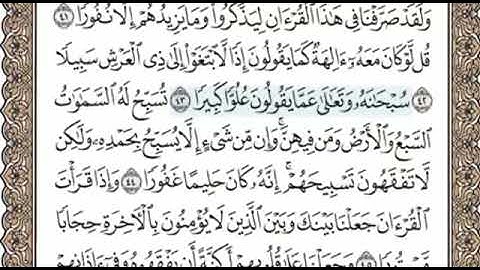 وَلَقَدْ صَرَّفْنَا فِي هَٰذَا الْقُرْءَانِ لِيَذَّكَّرُوا۟ وَمَا يَزِيدُهُمْ إِلَّا نُفُورًا ٤١
قُل لَّوْ كَانَ مَعَهُۥٓ ءَالِهَةٌ كَمَا يَقُولُونَ إِذًا لَّٱبْتَغَوْا۟ إِلَىٰ ذِي الْعَرْشِ سَبِيلًا
٤٢ سُبْحَٰنَهُۥ وَتَعَٰلَىٰ عَمَّا يَقُولُونَ عُلُوًّا كَبِيرًا ٤٣ تُسَبِّحُ لَهُ السَّمَٰوَٰتُ
السَّبْعُ وَالْأَرْضُ وَمَن فِيهِنَّ ۚ وَإِن مِّن شَيْءٍ إِلَّا يُسَبِّحُ بِحَمْدِهِۦ وَلَٰكِن
لَّا تَفْقَهُونَ تَسْبِيحَهُمْ ۗ إِنَّهُۥ كَانَ حَلِيمًا غَفُورًا ٤٤ وَإِذَا قَرَأْتَ
الْقُرْءَانَ جَعَلْنَا بَيْنَكَ وَبَيْنَ الَّذِينَ لَا يُؤْمِنُونَ بِالْءَاخِرَةِ حِجَابًا
مَّسْتُورًا ٤٥ وَجَعَلْنَا عَلَىٰ قُلُوبِهِمْ أَكِنَّةً أَن يَفْقَهُوهُ وَفِيٓ ءَاذَانِهِمْ